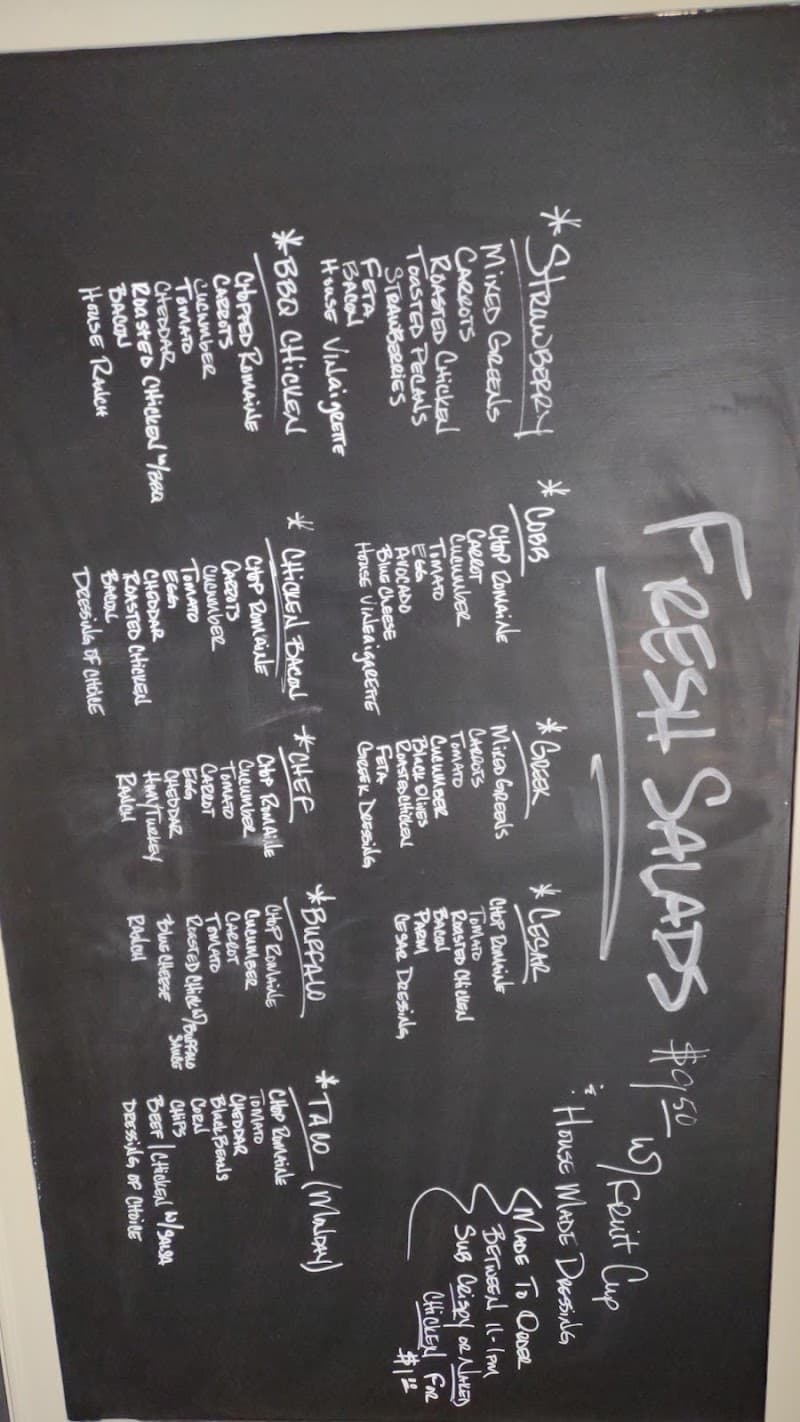 FRESH SALADS $9.50 w/ Fruit Cup
& House Made Dressing
* STRAWBERRY
MIXED GREENS
CARROTS
ROASTED CHICKEN
TOASTED PECANS
STRAWBERRIES
FETA
BACON
HOUSE VINAIGRETTE
* COBB
CHOP ROMAINE
CARROT
CUCUMBER
TOMATO
EGG
AVOCADO
BLUE CHEESE
HOUSE VINEAIGARETTE
* GREEK
MIXED GREENS
CARROTS
TOMATO
CUCUMBER
BLACK OLIVES
ROASTED CHICKEN
FETA
GREEK DRESSING
* CESAR
CHOP ROMAINE
TOMATO
ROASTED CHICKEN
BACON
PARM
CESAR DRESSING
MADE TO ORDER
BETWEEN 11-1PM
SUB CRISPY OR NAKED
CHICKEN FOR
$1.00
* BBQ CHICKEN
CHOPPED ROMAINE
CARROTS
CUCUMBER
TOMATO
CHEDDAR
ROASTED CHICKEN w/BBQ
BACON
HOUSE RANCH
* CHICKEN BACON
CHOP ROMAINE
CARROTS
CUCUMBER
TOMATO
EGG
CHEDDAR
ROASTED CHICKEN
BACON
DRESSING OF CHOICE
* CHEF
CHOP ROMAINE
CUCUMBER
TOMATO
CARROT
EGG
CHEDDAR
HAM/TURKEY
RANCH
* BUFFALO
CHOP ROMAINE
CUCUMBER
CARROT
TOMATO
ROASTED CHICK w/BUFFALO
SAUCE
BLUE CHEESE
RANCH
* TACO (MONDAY)
CHOP ROMAINE
TOMATO
CHEDDAR
BLACK BEANS
CORN
CHIPS
BEEF/CHICKEN w/SALSA
DRESSING OF CHOICE